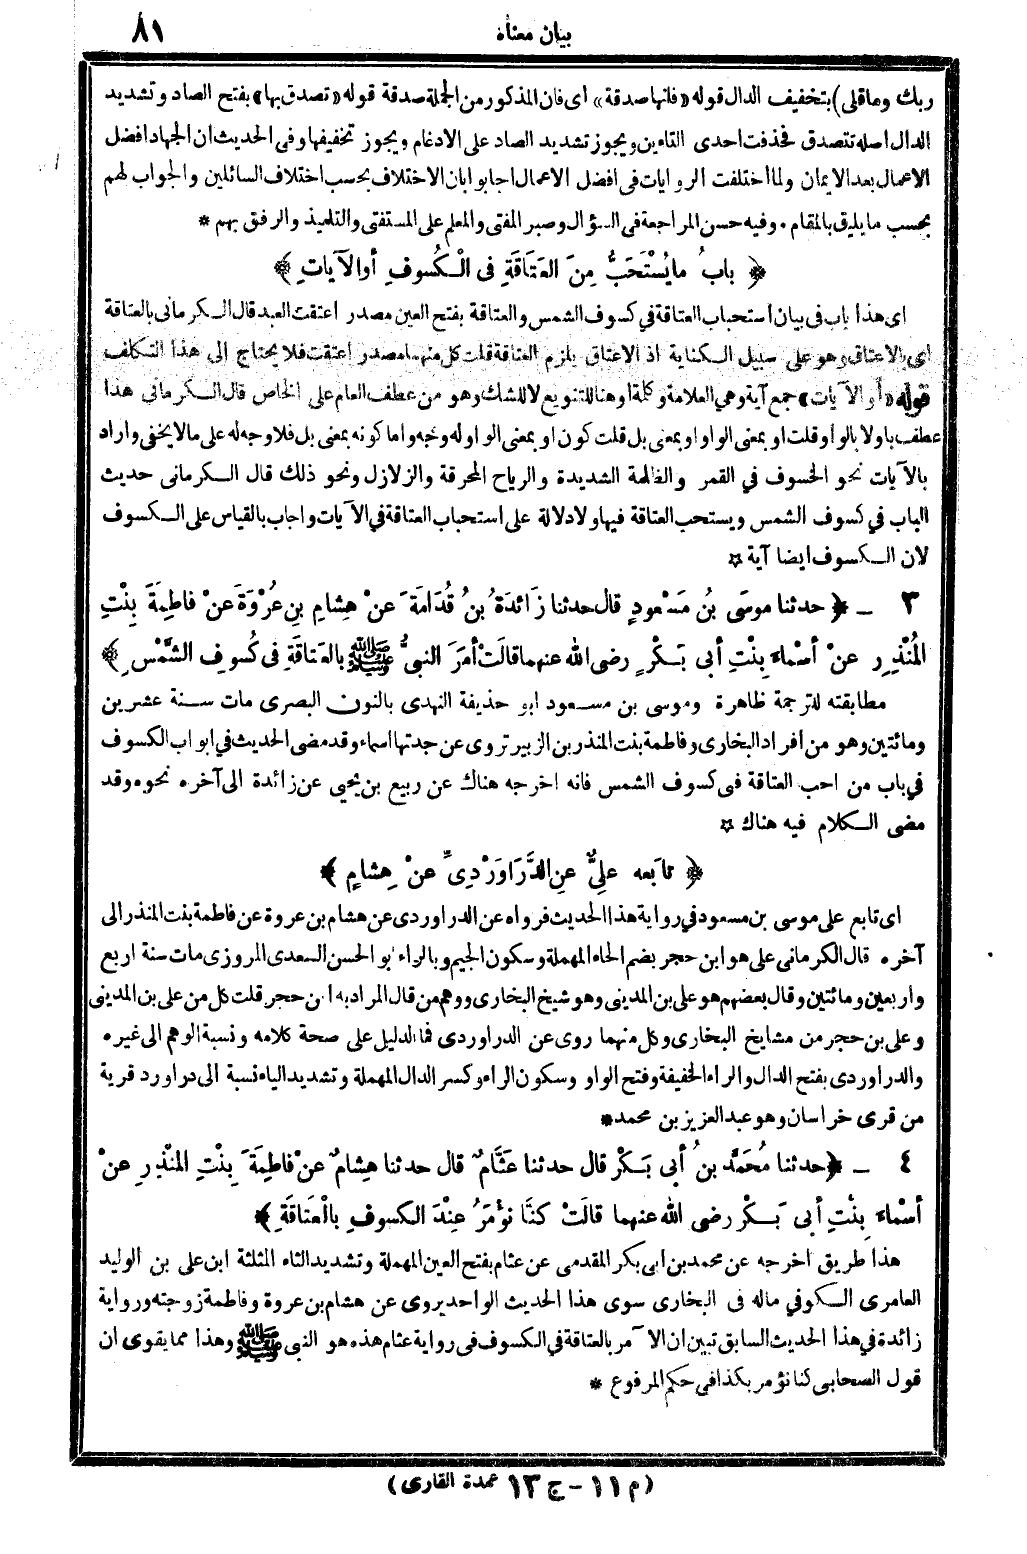 بيان معناه
٨١
ربك وما قلى) بتخفيف الدال قوله «فانها صدقة» اى فان المذكور من الجملة صدقة قوله «تصدق بها» بفتح الصاد وتشديد
الدال اصله تتصدق فحذفت احدى التاءين ويجوز تشديد الصاد على الادغام ويجوز تخفيفها وفى الحديث ان الجهاد افضل
الاعمال بعد الايمان ولما اختلفت الروايات فى افضل الاعمال اجابوا بان الاختلاف بحسب اختلاف السائلين والجواب لهم
بحسب ما يليق بالمقام . وفيه حسن المراجعة فى السؤال وصبر المفتى والمعلم على المستفتى والتلميذ والرفق بهم *
﴿ بابُ ما يُسْتَحَبُّ مِنَ العَتَاقَةِ فى الْكُسوفِ أو الآيَاتِ ﴾
اى هذا باب فى بيان استحباب العتاقة في كسوف الشمس والعتاقة بفتح العين مصدر اعتقت العبد قال الكرمانى بالعتاقة
اى بالاعتاق وهو على سبيل الكناية اذ الاعتاق يلزم العتاقة قلت كل منهما مصدر اعتقت فلا يحتاج الى هذا التكلف
قوله «أو الآيات» جمع آية وهي العلامة وكلة او هنا للتنويع لا للشك وهو من عطف العام على الخاص قال الكرمانى هذا
عطف باو لا بالواو قلت او بمعنى الواو او بمعنى بل قلت كون او بمعنى الواو له وجه واما كونه بمعنى بل فلا وجه له على ما لا يخفى واراد
بالآيات نحو الخسوف في القمر والظلمة الشديدة والرياح المحرقة والزلازل ونحو ذلك قال الكرمانى حديث
الباب في كسوف الشمس ويستحب العتاقة فيها ولا دلالة على استحباب العتاقة في الآيات واجاب بالقياس على الكسوف
لان الكسوف ايضا آية ☆
٣ _ ﴿ حدثنا موسَى بُن مَسْعودٍ قال حدثنا زَائدَةُ بُن قُدَامَةَ عنْ هِشامِ بنِ عُرْوَةَ عنْ فاطِمةَ بِنْتِ
المُنْذِرِ عنْ أسْماءَ بِنْتِ أبى بَكْرٍ رضى الله عنهما قالَتْ أمَرَ النبىُّ ﷺ بالعَتَاقَةِ فى كُسوفِ الشَّمْسِ ﴾
مطابقته للترجمة ظاهرة وموسى بن مسعود ابو حذيفة النهدى بالنون البصرى مات سنة عشرين
ومائتين وهو من افراد البخارى وفاطمة بنت المنذر بن الزبير تروى عن جدتها اسماء وقد مضى الحديث في ابواب الكسوف
في باب من احب العتاقة فى كسوف الشمس فانه اخرجه هناك عن ربيع بن يحيى عن زائدة الى آخره نحوه وقد
مضى الكلام فيه هناك ☆
﴿ تابَعه علىٌّ عنِ الدَّرَاوَرْدِىِّ عنْ هِشامٍ ﴾
اى تابع على موسى بن مسعود في رواية هذا الحديث فرواه عن الدراوردى عن هشام بن عروة عن فاطمة بنت المنذر الى
آخره قال الكرمانى على هو ابن حجر بضم الحاء المهملة وسكون الجيم وبالراء ابو الحسن السعدى المروزى مات سنة اربع
واربعين ومائتين وقال بعضهم هو على بن المدينى وهو شيخ البخارى ووهم من قال المراد به ابن حجر قلت كل من على بن المدينى
وعلى بن حجر من مشايخ البخارى وكل منهما روى عن الدراوردى فما الدليل على صحة كلامه ونسبة الوهم الى غيره
والدراوردى بفتح الدال والراء الخفيفة وفتح الواو وسكون الراء وكسر الدال المهملة وتشديد الياء نسبة الى دراورد قرية
من قرى خراسان وهو عبد العزيز بن محمد *
٤ _ ﴿ حدثنا مُحَمَّد بنُ أبى بَكْرٍ قال حدثنا عَثَّامٌ قال حدثنا هِشامٌ عنْ فاطِمَةَ بِنْتِ المُنْذِرِ عنْ
أسْماءَ بِنْتِ أبى بَكْرٍ رضى الله عنهما قالَتْ كنَّا نُؤمَرُ عِنْدَ الكسوفِ بالْعَتاقَةِ ﴾
هذا طريق اخرجه عن محمد بن ابى بكر المقدمى عن عثام بفتح العين المهملة وتشديد الثاء المثلثة ابن على بن الوليد
العامرى الكوفي ماله فى البخارى سوى هذا الحديث الواحد يروى عن هشام بن عروة وفاطمة زوجته ورواية
زائدة في هذا الحديث السابق تبين ان الآمر بالعتاقة في الكسوف فى رواية عثام هذه هو النبى ﷺ وهذا مما يقوى ان
قول الصحابى كنا نؤمر بكذا فى حكم المرفوع *
(م ١١ - ج ١٣ عمدة القارى)